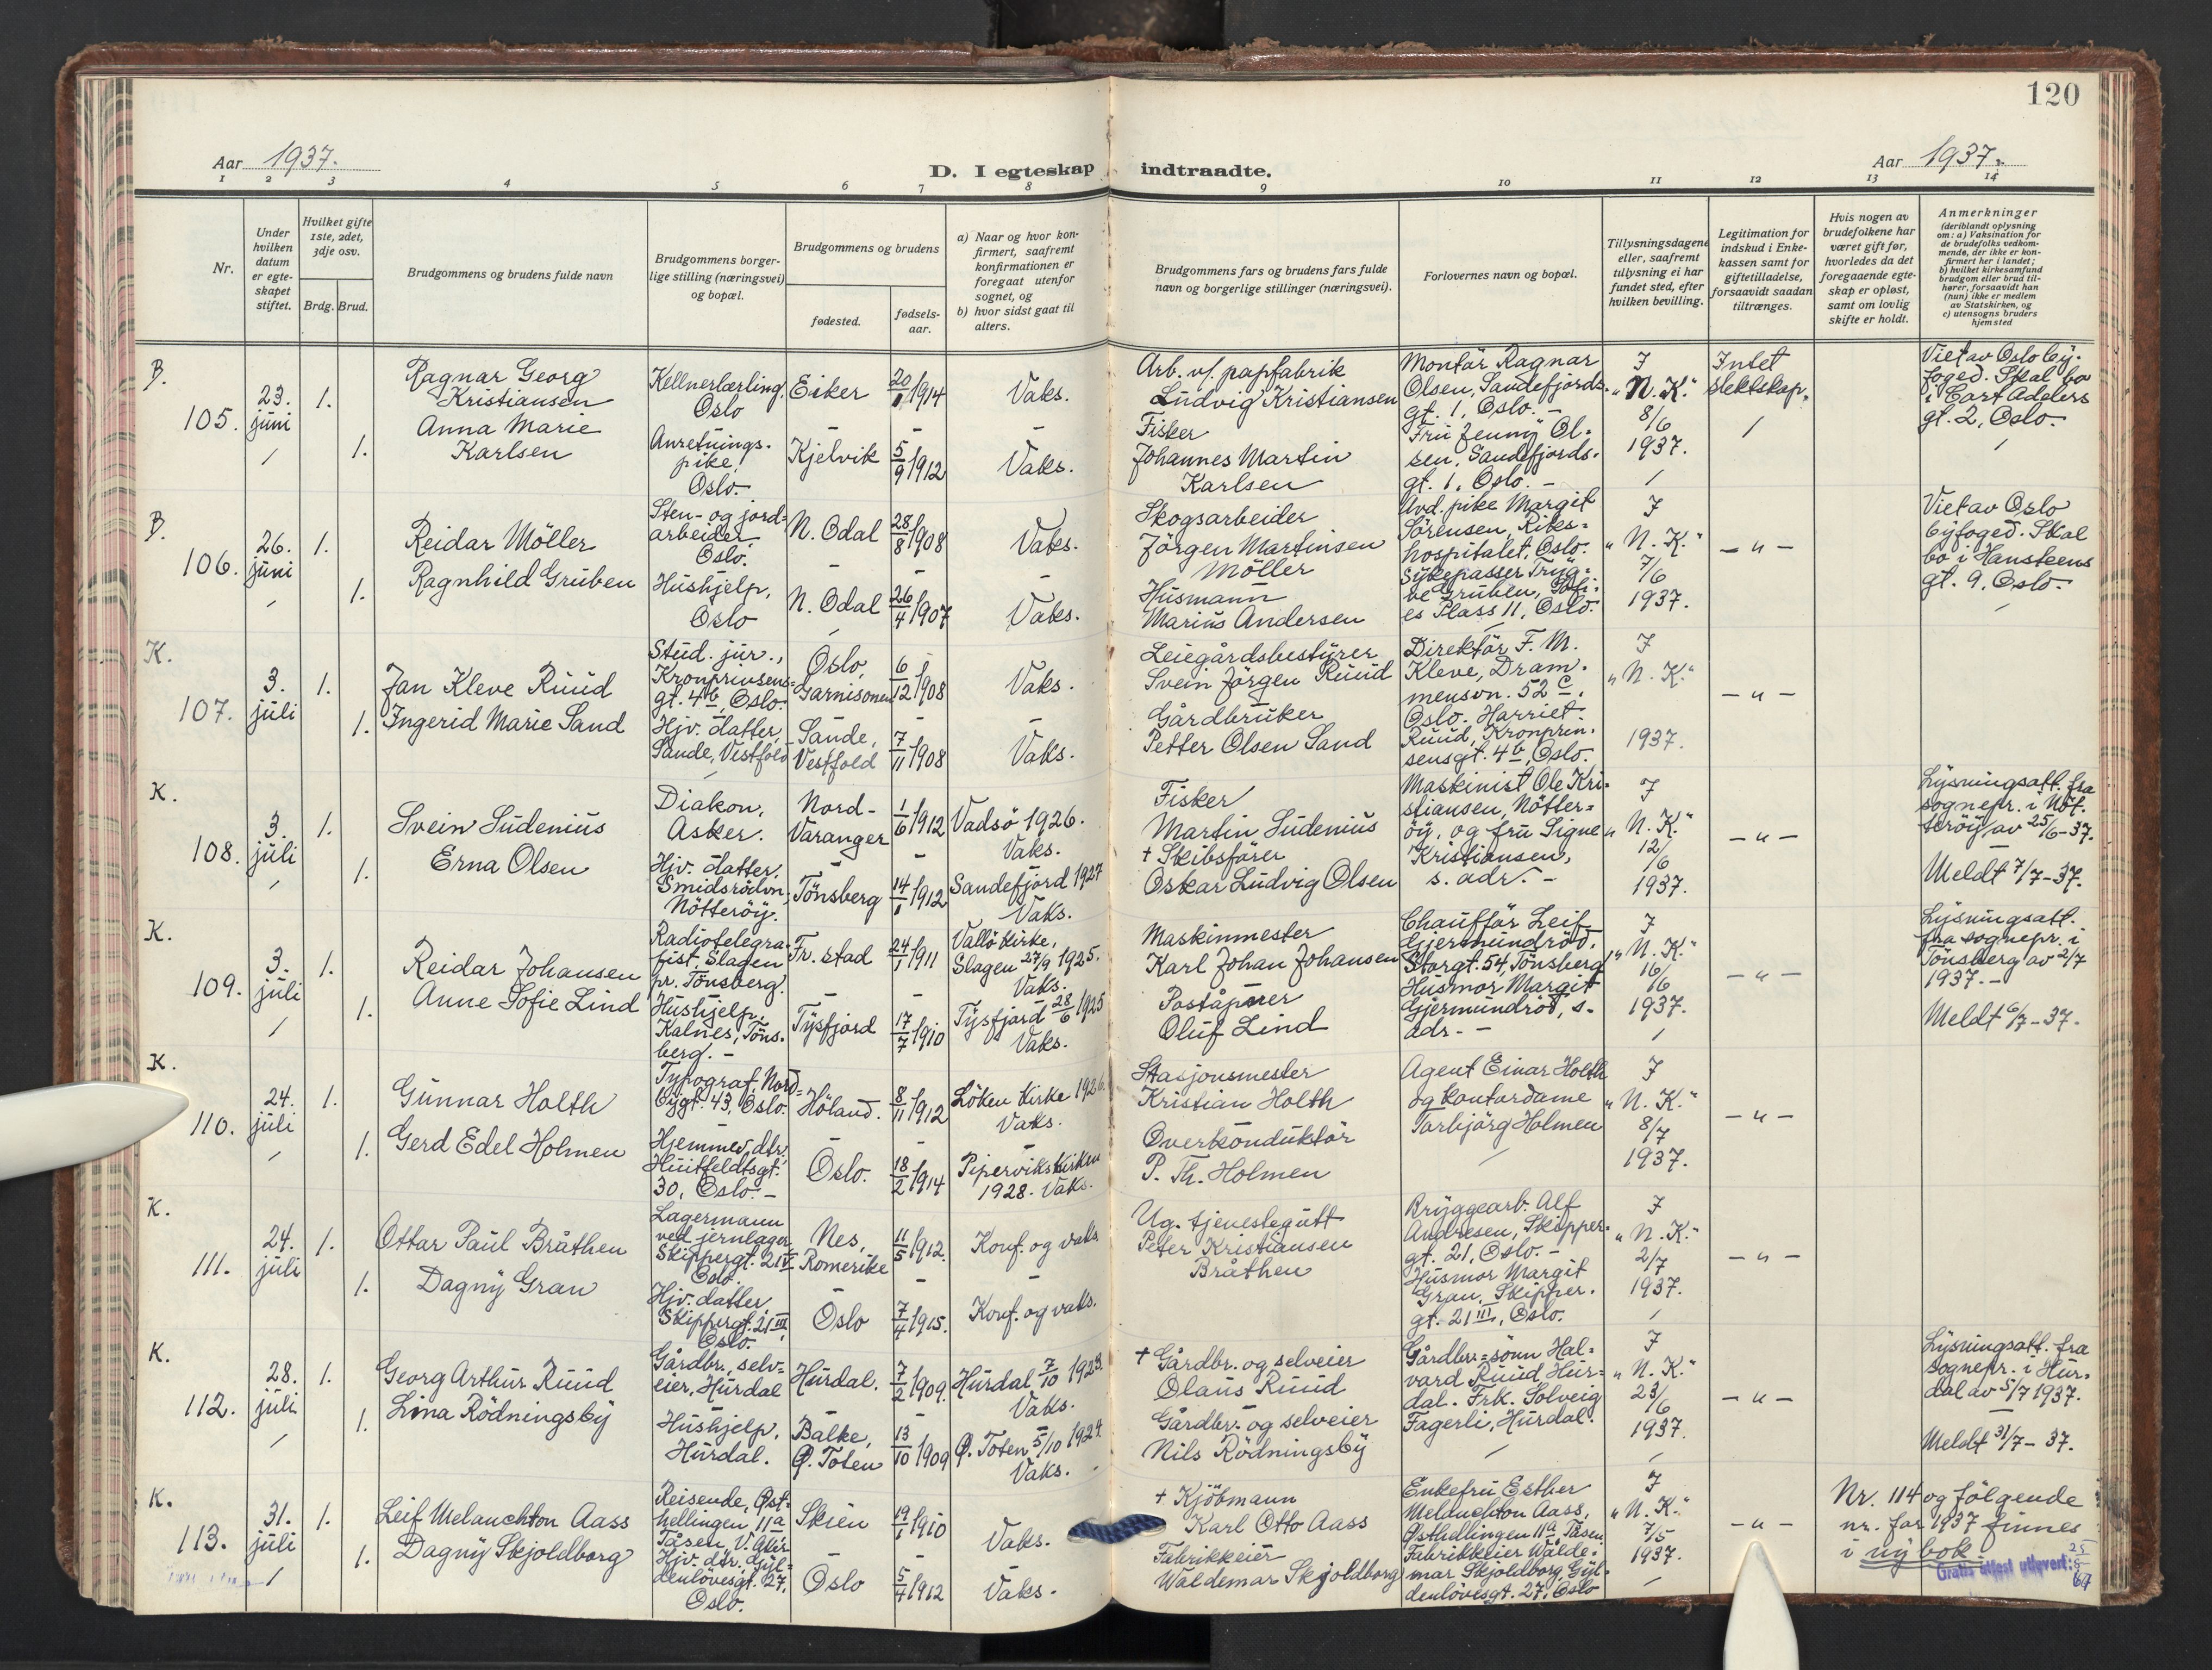 120
Aar 1937.
D. I egteskap indtraadte.
Aar 1937.
1 2 3 4 5 6 7 8 9 10 11 12 13 14
Nr.
Under hvilken datum er egteskapet stiftet.
Hvilket gifte 1ste, 2det, 3dje osv.
Brdg. Brud.
Brudgommens og brudens fulde navn
Brudgommens borgerlige stilling (næringsvei) og bopæl.
Brudgommens og brudens
fødested.
fødselsaar.
a) Naar og hvor konfirmert, saafremt konfirmationen er foregaat utenfor sognet, og
b) hvor sidst gaat til alters.
Brudgommens fars og brudens fars fulde navn og borgerlige stillinger (næringsvei).
Forlovernes navn og bopæl.
Tillysningsdagene eller, saafremt tillysning ei har fundet sted, efter hvilken bevilling.
Legitimation for indskud i Enkekassen samt for giftetilladelse, forsaavidt saadan tiltrænges.
Hvis nogen av brudefolkene har været gift før, hvorledes da det foregaaende egteskap er opløst, samt om lovlig skifte er holdt.
Anmerkninger (deriblandt oplysning om: a) Vaksination for de brudefolks vedkommende, der ikke er konfirmert her i landet; b) hvilket kirkesamfund brudgom eller brud tilhører, forsaavidt han (hun) ikke er medlem av Statskirken, og c) utensogns bruders hjemsted
B.
105. 23. juni 1.
Ragnar Georg Kristiansen
Kellnerlærling, Oslo
Eiker 20/1 1914 Vaks.
Arb. v/ papfabrik
Ludvig Kristiansen
Montør Ragnar Olsen, Sandefjordsgt. 1, Oslo. -
I "N. K." 8/6 1937.
Intet slektskap.
Viet av Oslo byfoged. Skal bo i Cort Adelers gt. 2, Oslo.
1. Anna Marie Karlsen
Anretningspike, Oslo.
Kjelvik 5/9 1912 Vaks.
Fisker
Johannes Martin Karlsen
Fru Jenny Olsen, Sandefjordsgt. 1, Oslo. -
B.
106. 26. juni 1.
Reidar Möller
Sten- og jordarbeider, Oslo.
N. Odal 28/8 1908 Vaks.
Skogsarbeider
Jörgen Martinsen Möller
Avd. pike Margit Sörensen, Rikshospitalet, Oslo.
I "N. K." 7/6 1937.
- " -
Viet av Oslo byfoged. Skal bo i Hansteens gt. 9, Oslo.
1. Ragnhild Gruben
Hushjelp, Oslo
N. Odal 26/4 1907 Vaks.
Husmann
Marius Andersen
Sykepasser Plass 11, Oslo.
K.
107. 3. juli 1.
Jan Kleve Ruud
Stud. jur., Kronprinsensgt. 4b, Oslo.
Oslo, Garnisonen 6/12 1908 Vaks.
Leiegårdsbestyrer
Svein Jörgen Ruud
Direktör F. M. Kleve, Drammensvn. 52 c, Oslo.
I "N. K." 1937.
- " -
1. Ingerid Marie Sand
Hjv. datter, Sande, Vestfold
Sande, Vestfold 7/11 1908 Vaks.
Gårdbruker
Petter Olsen Sand
Harriet Ruud, Kronprinsensgt. 4b, Oslo.
K.
108. 3. juli 1.
Svein Sudenius
Diakon, Asker.
Nord-Varanger 1/6 1912 Vadsö 1926. Vaks.
Fisker
Martin Sudenius
Maskinist Ole Kristiansen, Nötteröy, og fru Signe Kristiansen, s. adr. -
I "N. K." 12/6 1937.
- " -
Lysningsatt. fra sognepr. i Nötteröy av 25/6-37.
Meldt 7/7-37.
1. Erna Olsen
Hjv. datter, Smidsrödvn, Nötteröy.
Tönsberg 14/1 1912 Sandefjord 1927 Vaks.
+ Skibsförer
Oskar Ludvig Olsen
K.
109. 3. juli 1.
Reidar Johansen
Radiotelegrafist, Slagen pr. Tönsberg.
Fr. stad 24/1 1911 Vallö kirke, Slagen 27/9 1925. Vaks.
Maskinmester
Karl Johan Johansen
Chaufför Leif Gjermundröd, Storgt. 54, Tönsberg
I "N. K." 16/6 1937.
- " -
Lysningsatt. fra sognepr. i Tönsberg av 2/7 1937. -
Meldt 6/7-37.
1. Anne Sofie Lind
Hushjelp, Kalnes, Tönsberg. -
Tysfjord 17/7 1910 Tysfjord 28/6 1925 Vaks.
Poståpner
Oluf Lind
Husmor Margit Gjermundröd, s. adr. -
K.
110. 24. juli 1.
Gunnar Holth
Typograf, Nordbygt. 43, Oslo.
Höland. 8/11 1912 Löken kirke 1926. Vaks.
Stasjonsmester
Kristian Holth
Agent Einar Holth og kontordame Torbjörg Holmen
I "N. K." 8/7 1937.
- " -
1. Gerd Edel Holmen
Hjemmev. dtr, Huitfeldtsgt. 30, Oslo. -
Oslo. 18/2 1914 Piperviks kirken 1928. Vaks.
Overkonduktör
P. Th. Holmen
K.
111. 24. juli 1.
Ottar Paul Bråthen
Lagermann ved jernlager, Skippergt. 21 IV Oslo.
Nes, Romerike 11/5 1912. Konf. og vaks
Ug. tjenestegutt
Peter Kristiansen Bråthen
Bryggearb. Alf Andresen, Skippergt. 21, Oslo. -
I "N. K." 2/7 1937.
- " -
1. Dagny Gran
Hjv. datter, Skippergt. 21 III, Oslo.
Oslo 7/4 1915. Konf. og vaks.
Husmor Margit Gran, Skippergt. 21 III, Oslo.
K.
112. 28. juli 1.
Georg Arthur Ruud
Gårdbr., selveier, Hurdal
Hurdal. 7/2 1909. Hurdal 7/10 1923. Vaks.
+ Gårdbr. og selveier
Olaus Ruud
Gårdbr.=sönn Halvard Ruud, Hurdal. Frk. Solveig Fagerli, Hurdal.
I "N. K." 23/6 1937.
- " -
Lysningsatt. fra sognepr. i Hurdal av 5/7 1937.
Meldt 31/7-37.
1. Lina Rödningsby
Hushjelp, Hurdal.
Balke, Ø. Toten 13/10 1909 Ø. Toten 5/10 1924. Vaks.
Gårdbr. og selveier
Nils Rödningsby
K.
113. 31. juli 1.
Leif Melanchton Aass
Reisende, Østhellingen 11a Tåsen, V. Aker
Skien 19/1 1910 Vaks.
+ Kjöbmann
Karl Otto Aass
Enkefru Esther Melanchton Aass, Østhellingen 11a, Tåsen
I "N. K." 7/5 1937.
- " -
Nr. 114 og fölgende nr. for 1937 finnes i ny bok.
1. Dagny Skjoldborg
Hjv. dtr. Gyldenlövesgt. 27, Oslo.
Oslo 5/4 1912 Vaks.
Fabrikkeier
Waldemar Skjoldborg
Fabrikkeier Waldemar Skjoldborg, Gyldenlövesgt. 27, Oslo
Gratis attest utlevert: